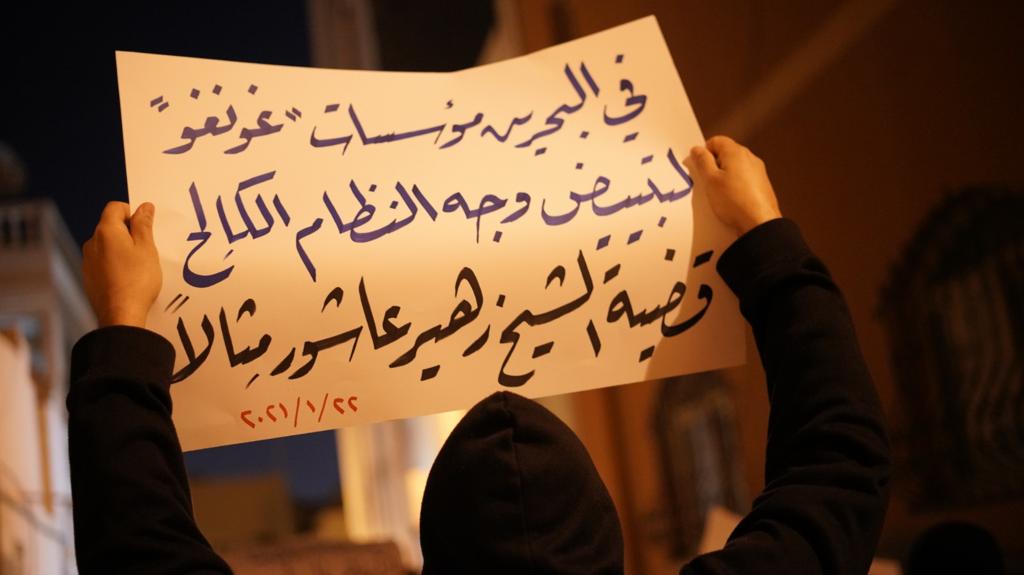 في البحرين مؤسسات "غونغو"
لتبييض وجه النظام الكالح
قضية الشيخ زهير عاشور مثالاً
٢٠٢١/١/٢٢